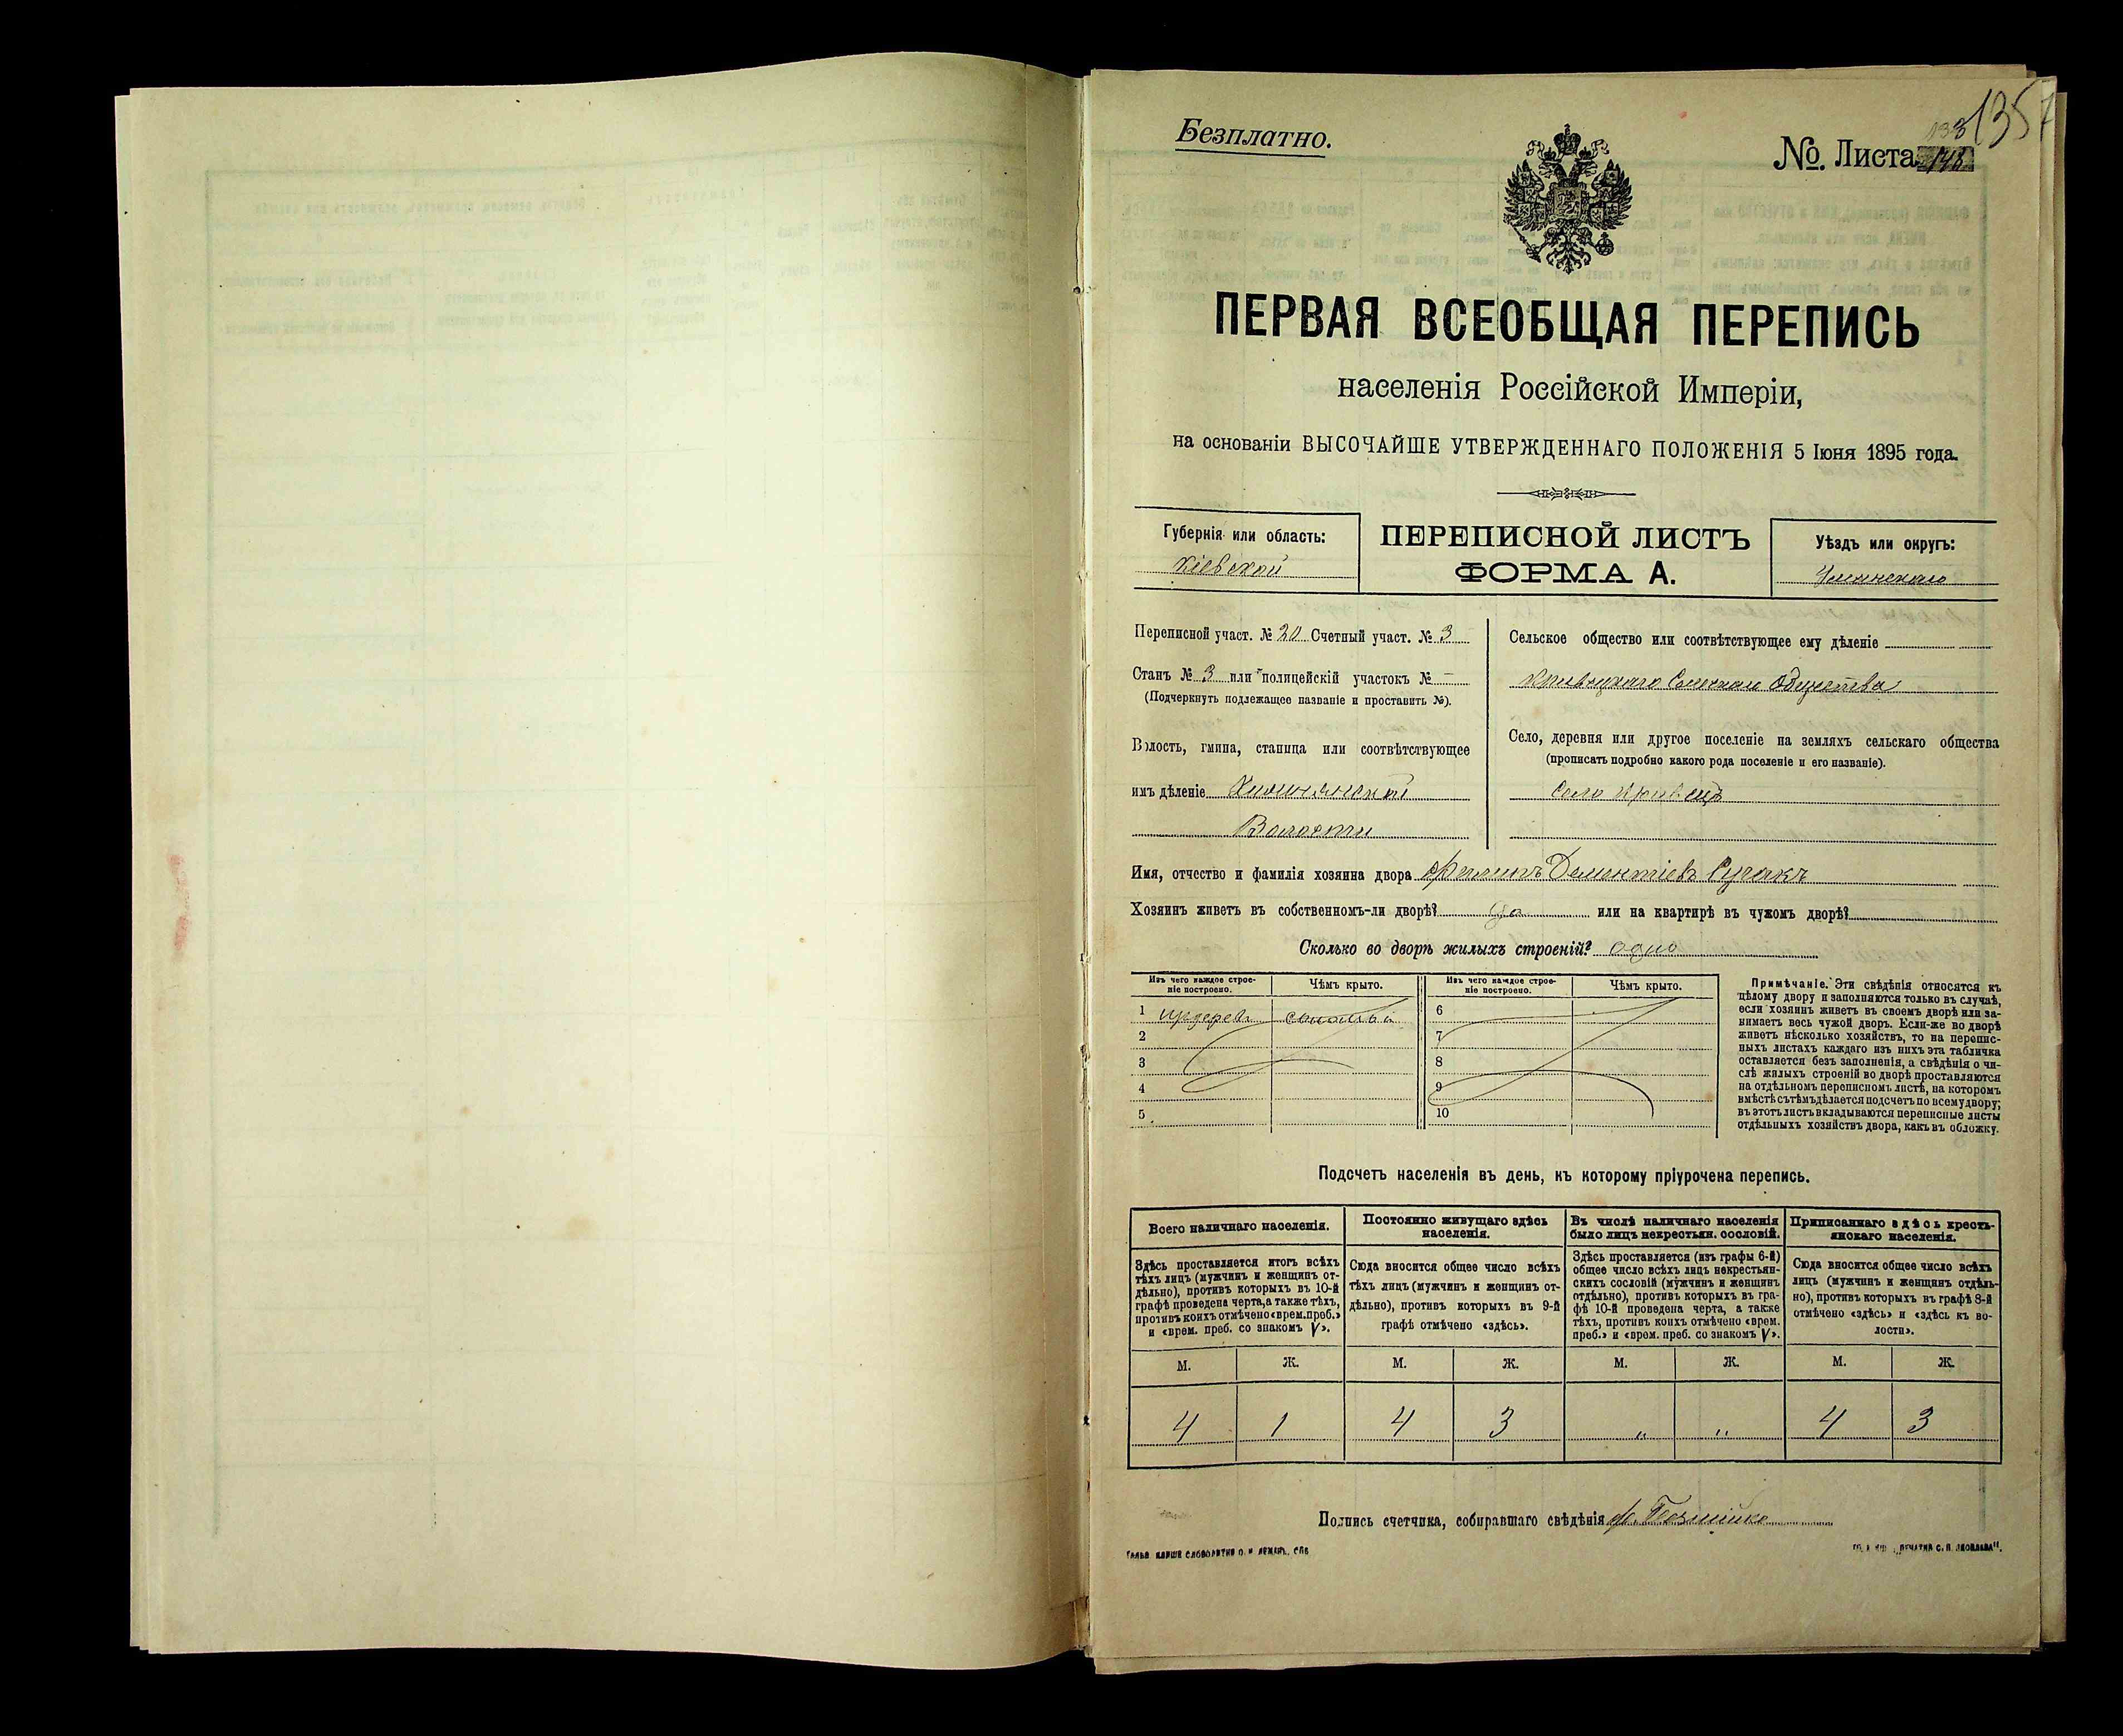 1357
Безплатно.
133
№. Листа 148
ПЕРВАЯ ВСЕОБЩАЯ ПЕРЕПИСЬ
населенія Россійской Имперіи,
на основаніи ВЫСОЧАЙШЕ УТВЕРЖДЕННАГО ПОЛОЖЕНІЯ 5 Іюня 1895 года.
Губернія или область:
Кіевской
ПЕРЕПИСНОЙ ЛИСТЪ
ФОРМА А.
Уѣздъ или округъ:
Уманскаго
Переписной участ. № 20 Счетный участ. № 3
Станъ № 3 или полицейскій участокъ № —
(Подчеркнуть подлежащее названіе и проставить №).
Волость, гмина, станица или соотвѣтствующее
имъ дѣленіе
Волости
Сельское общество или соотвѣтствующее ему дѣленіе
Общества
Село, деревня или другое поселеніе на земляхъ сельскаго общества
(прописать подробно какого рода поселеніе и его названіе).
Село Кривецъ
Имя, отчество и фамилія хозяина двора Филипъ Дементіевъ
Хозяинъ живетъ въ собственномъ-ли дворѣ? да или на квартирѣ въ чужомъ дворѣ?
Сколько во дворѣ жилыхъ строеній? одно
Изъ чего каждое строе-
ніе построено.
Чѣмъ крыто.
Изъ чего каждое строе-
ніе построено.
Чѣмъ крыто.
1 соломой 6
2 7
3 8
4 9
5 10
Примѣчаніе. Эти свѣдѣнія относятся къ
цѣлому двору и заполняются только въ случаѣ,
если хозяинъ живетъ въ своемъ дворѣ или за-
нимаетъ весь чужой дворъ. Если-же во дворѣ
живетъ нѣсколько хозяйствъ, то на перепис-
ныхъ листахъ каждаго изъ нихъ эта табличка
оставляется безъ заполненія, а свѣдѣнія о чи-
слѣ жилыхъ строеній во дворѣ проставляются
на отдѣльномъ переписномъ листѣ, на которомъ
вмѣстѣ съ тѣмъ дѣлается подсчетъ по всему двору;
въ этотъ листъ вкладываются переписные листы
отдѣльныхъ хозяйствъ двора, какъ въ обложку.
Подсчетъ населенія въ день, къ которому пріурочена перепись.
Всего наличнаго населенія.
Здѣсь проставляется итогъ всѣхъ
тѣхъ лицъ (мужчинъ и женщинъ от-
дѣльно), противъ которыхъ въ 10-й
графѣ проведена черта, а также тѣхъ,
противъ коихъ отмѣчено «врем. преб.»
и «врем. преб. со знакомъ V».
Постоянно живущаго здѣсь
населенія.
Сюда вносится общее число всѣхъ
тѣхъ лицъ (мужчинъ и женщинъ от-
дѣльно), противъ которыхъ въ 9-й
графѣ отмѣчено «здѣсь».
Въ числѣ наличнаго населенія
было лицъ некрестьян. сословій.
Здѣсь проставляется (изъ графы 6-й)
общее число всѣхъ лицъ некрестьян-
скихъ сословій (мужчинъ и женщинъ
отдѣльно), противъ которыхъ въ гра-
фѣ 10-й проведена черта, а также
тѣхъ, противъ коихъ отмѣчено «врем.
преб.» и «врем. преб. со знакомъ V».
Приписаннаго здѣсь кресть-
янскаго населенія.
Сюда вносится общее число всѣхъ
лицъ (мужчинъ и женщинъ отдѣль-
но), противъ которыхъ въ графѣ 8-й
отмѣчено «здѣсь» и «здѣсь къ во-
лости».
М. Ж. М. Ж. М. Ж. М. Ж.
4 1 4 3 „ „ 4 3
Подпись счетчика, собиравшаго свѣдѣнія